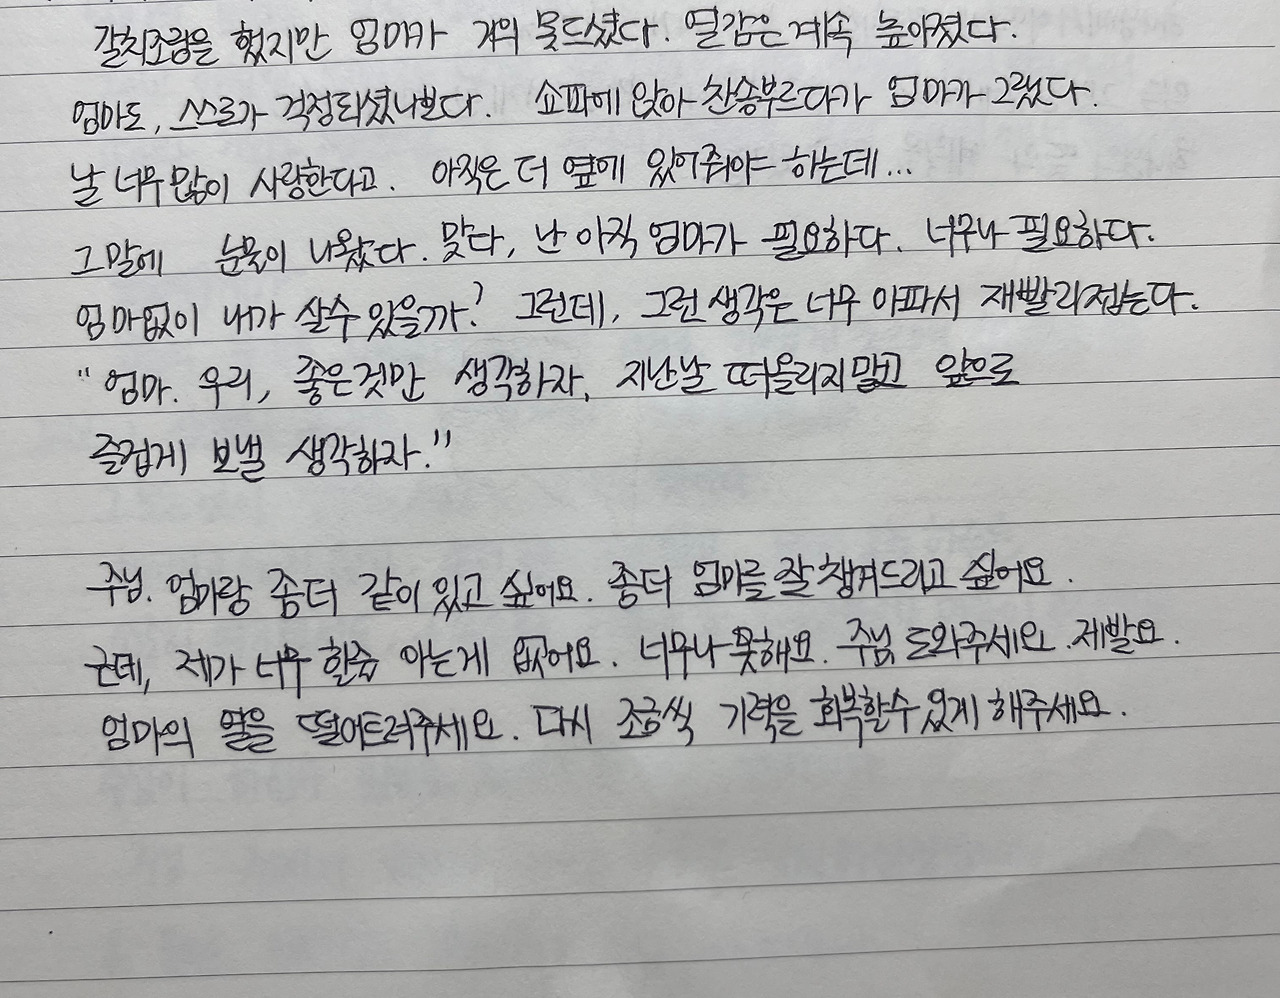 갈치조림을 했지만 엄마가 거의 못드셨다. 열감은 계속 높아졌다.
엄마도, 스스로가 걱정되셨나보다. 소파에 앉아 찬송부르다가 엄마가 그랬다.
날 너무 많이 사랑한다고. 아직은 더 옆에 있어줘야 하는데...
그말에 눈물이 나왔다. 맞다, 난 아직 엄마가 필요하다. 너무나 필요하다.
엄마없이 내가 살수 있을까? 그런데, 그런 생각은 너무 아파서 재빨리 접는다.
"엄마. 우리, 좋은것만 생각하자. 지난날 떠올리지말고 앞으로
즐겁게 보낼 생각하자."
주님. 엄마랑 좀더 같이 있고 싶어요. 좀더 엄마를 잘 챙겨드리고 싶어요.
근데, 제가 너무 할줄 아는게 없어요. 너무나 못해요. 주님 도와주세요. 제발요.
엄마의 열을 떨어트려주세요. 다시 조금씩 기력을 회복할수 있게 해주세요.